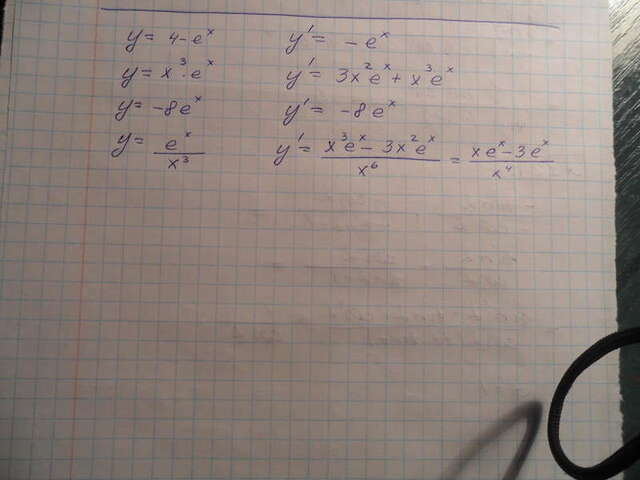 y = 4 - eˣ y' = - eˣ
y = x³ · eˣ y' = 3x²eˣ + x³eˣ
y = -8eˣ y' = -8eˣ
y = eˣ/x³ y' = (x³eˣ - 3x²eˣ)/x⁶ = (xeˣ - 3eˣ)/x⁴